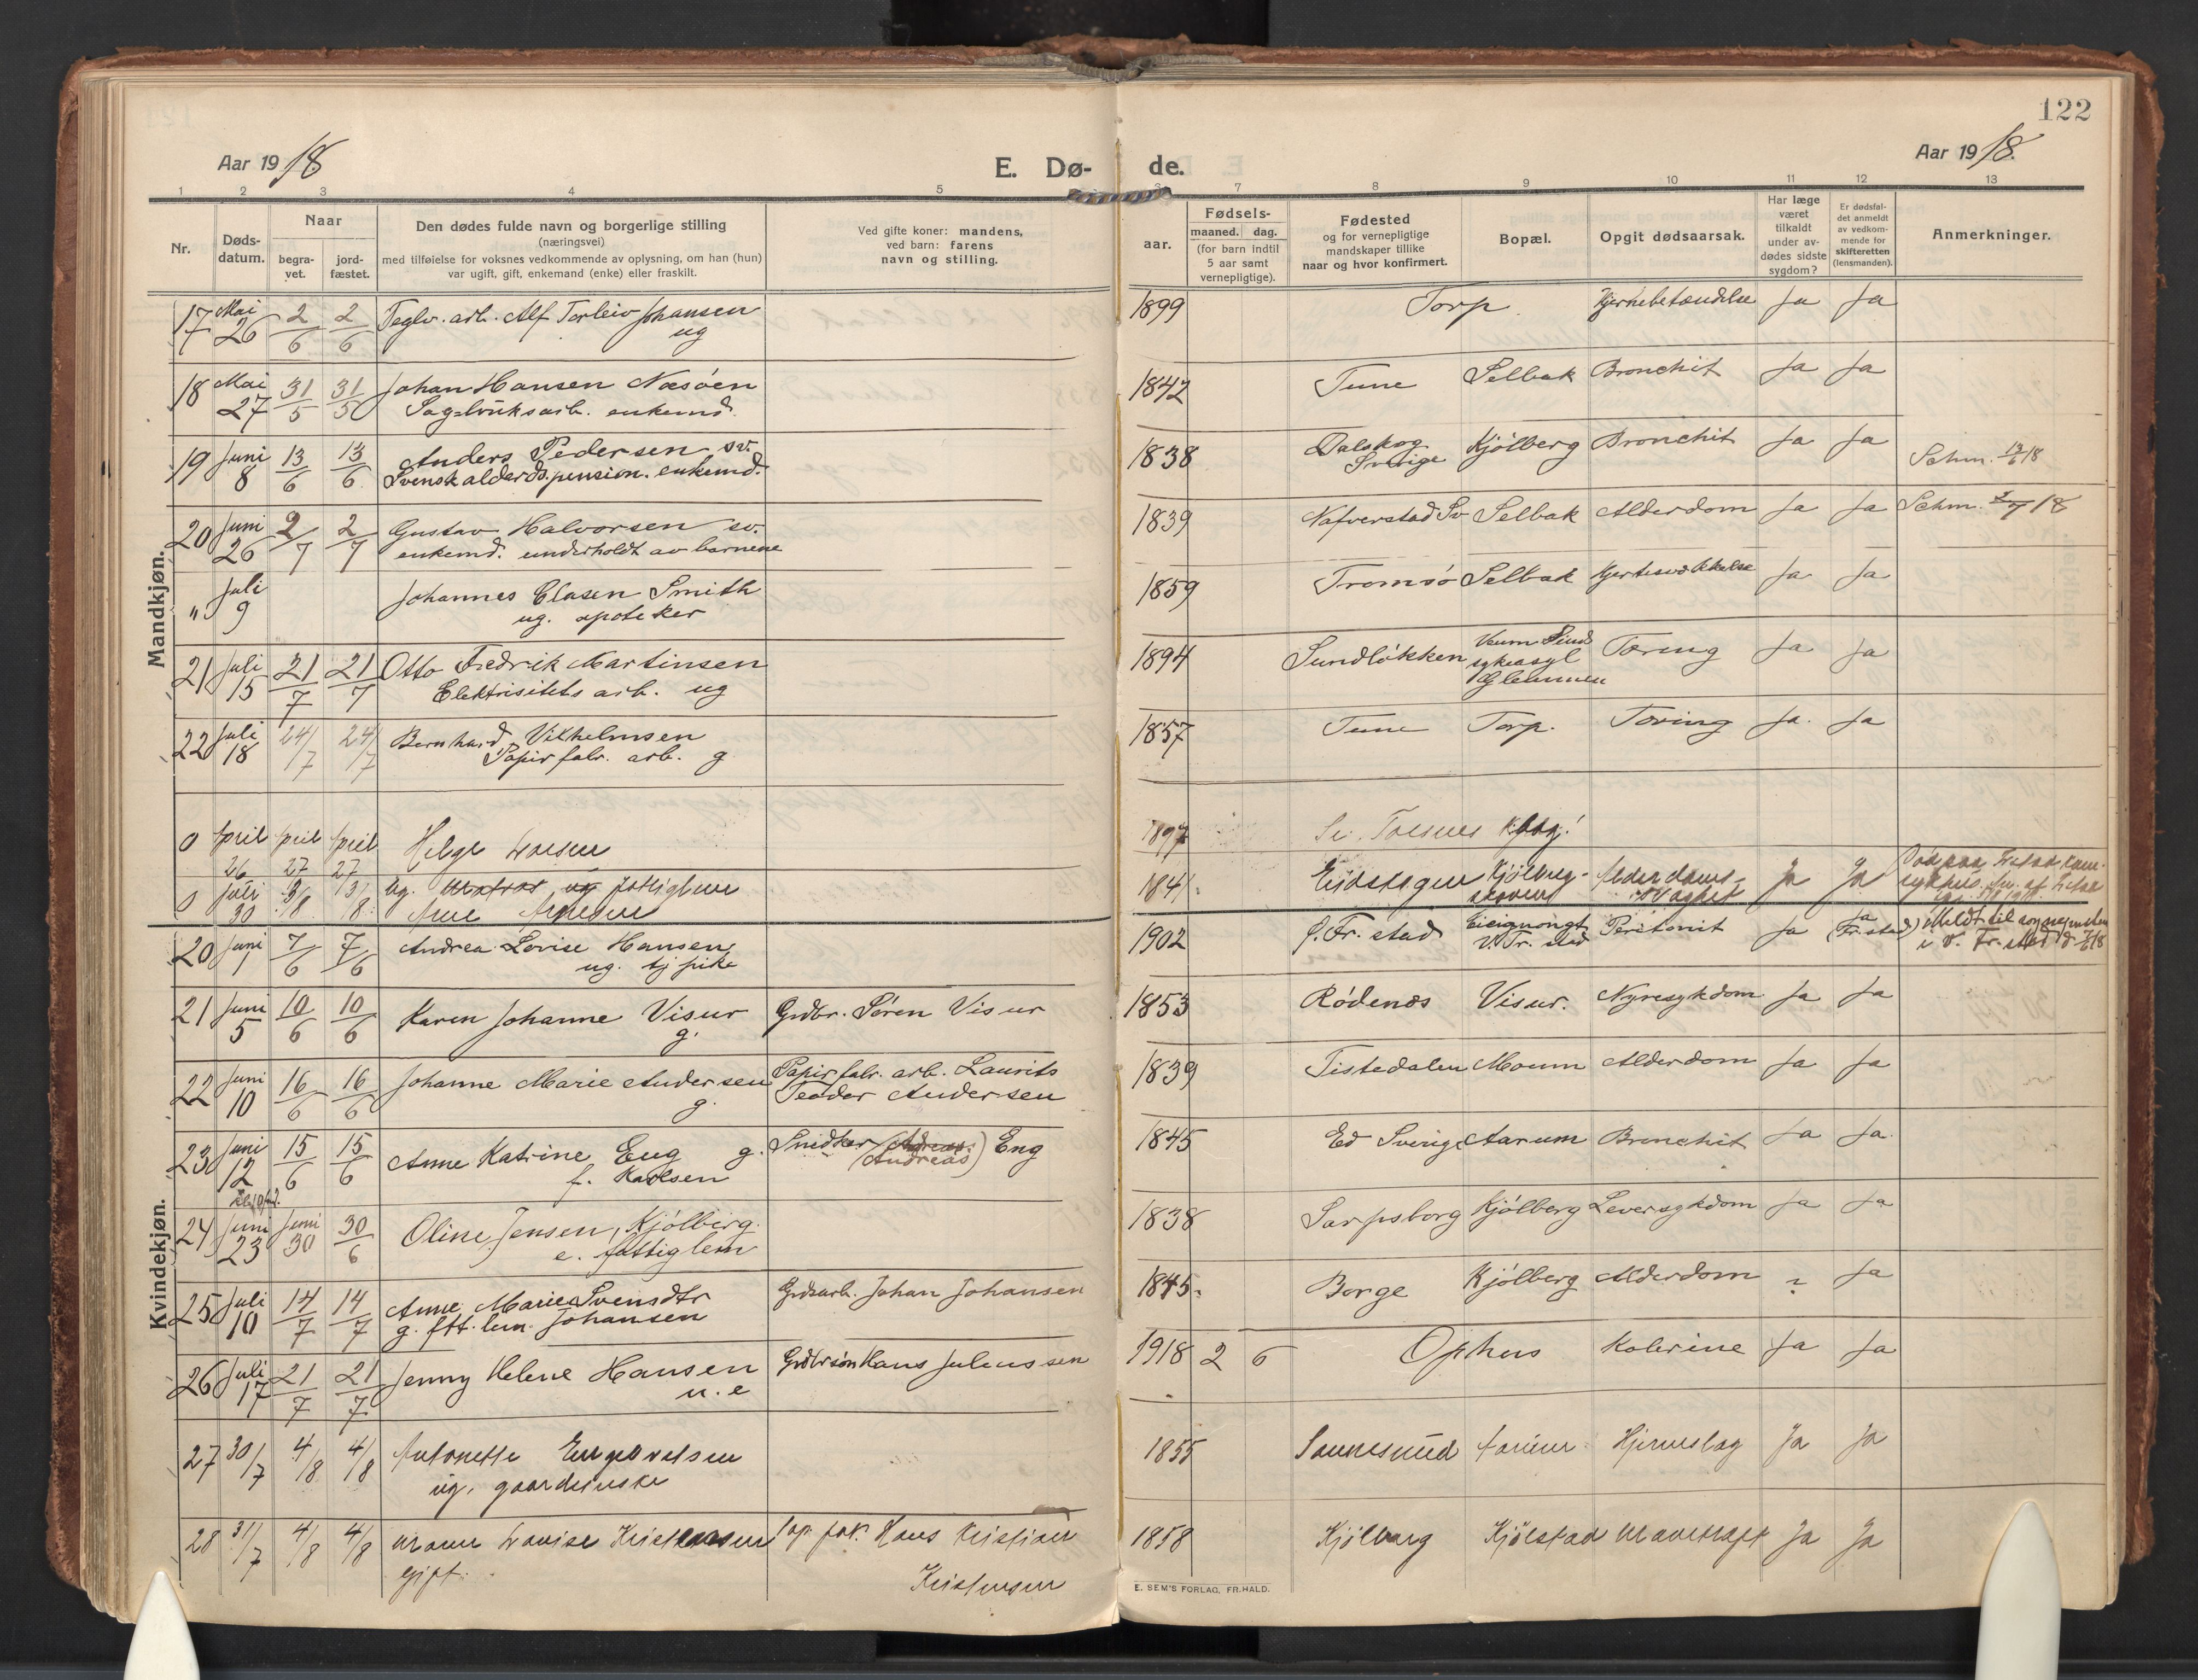 122
Aar 1918
E. Dø- de.
Aar 1918.
1 2 3 4 5 6 7 8 9 10 11 12 13
Nr.
Døds-
datum.
Naar
begra-
vet.
jord-
fæstet.
Den dødes fulde navn og borgerlige stilling
(næringsvei)
med tilføielse for voksnes vedkommende av oplysning, om han (hun)
var ugift, gift, enkemand (enke) eller fraskilt.
Ved gifte koner: mandens,
ved barn: farens
navn og stilling.
aar.
Fødsels-
maaned. dag.
(for barn indtil
5 aar samt
vernepligtige).
Fødested
og for vernepligtige
mandskaper tillike
naar og hvor konfirmert.
Bopæl.
Opgit dødsaarsak.
Har læge
været
tilkaldt
under av-
dødes sidste
sygdom?
Er dødsfal-
det anmeldt
av vedkom-
mende for
skifteretten
(lensmanden).
Anmerkninger.
Mandkjøn.
17 Mai 26 2/6 2/6 Teglv. arb. Alf Torleiv Johansen 1899 Torp Hjernebetændelse Ja Ja
ug
18 Mai 27 31/5 31/5 Johan Hansen Næsøen 1842 Tune Selbak Bronchit Ja Ja
Sagbruksarb. enkemd.
19 Juni 8 13/6 13/6 Anders Pedersen sv. 1838 Dalskog Sverige Kjølberg Bronchit Ja Ja Schm. 13/6 18
Svensk alderds.pension. enkemd.
20 Juni 26 2/7 2/7 Gustav Halvorsen sv. 1839 Nafverstad Sv Selbak Alderdom Ja Ja Schm. 2/7 18
enkemd. underholdt av barnene
" Juli 9 Johannes Clasen Smith 1859 Tromsø Selbak Hjertesvækkelse Ja Ja
ug. apoteker
21 Juli 15 21/7 21/7 Otto Fredrik Martinsen 1894 Sundløkken Veum Sind sykeasyl Glemmen Tæring Ja Ja
Elektrisitets arb. ug
22 Juli 18 24/7 24/7 Bernhard Vilhelmsen 1857 Tune Torp. Tæring Ja. Ja
Papirfabr. arb. g
0 April 26 April 27 April 27 Helge Larsen 1897
0 Juli 30 3/8 3/8 ug. fattiglem 1841. Eidskogen Ja Ja
Arne Arnesen
Kvindekjøn.
20 Juni 1 7/6 7/6 Andrea Lovise Hansen 1902 Fr. stad V. Fr. stad Peritonit Ja Ja (Fr. stad)
ug. tj pike
21 Juni 5 10/6 10/6 Karen Johanne Visur Grdbr. Søren Visur 1853 Rødenæs Visur. Nyresykdom Ja Ja
g.
22 Juni 10 16/6 16/6 Johanne Marie Andersen Papirfabr. arb. Laurits 1839 Tistedalen Moum Alderdom Ja Ja
g. Teodor Andersen
23 Juni 12 15/6 15/6 Anne Katrine Eng g. Snedker (Andreas) Eng 1845 Ed Sverige Aarum Bronchit Ja Ja
f. Karlsen
24 Juni 23 Juni 30 30/6 Oline Jensen, Kjølberg. 1838 Sarpsborg Kjølberg Leversykdom Ja Ja
e. fattiglem
25 Juli 10 14/7 14/7 Anne Marie Svensdtr Grdsarb. Johan Johansen 1845. Borge Kjølberg Alderdom ? Ja
g. ftt. lem. Johansen
26 Juli 17 21/7 21/7 Jenny Helene Hansen Grdbrsøn Hans Juliussen 1918 2 6 Ophus Kolerine Ja Ja
u. e
27 30/7 4/8 4/8 Antonette 1855 Sannesund Hjerneslag Ja Ja
ug.
28 31/7 4/8 4/8 Maren Lovise Kristensen Pap. fab. Hans Kristian 1858 Kjølberg Kjølstad Mavekræft Ja Ja
gift. Kristensen
E. SEM'S FORLAG, FR.HALD.